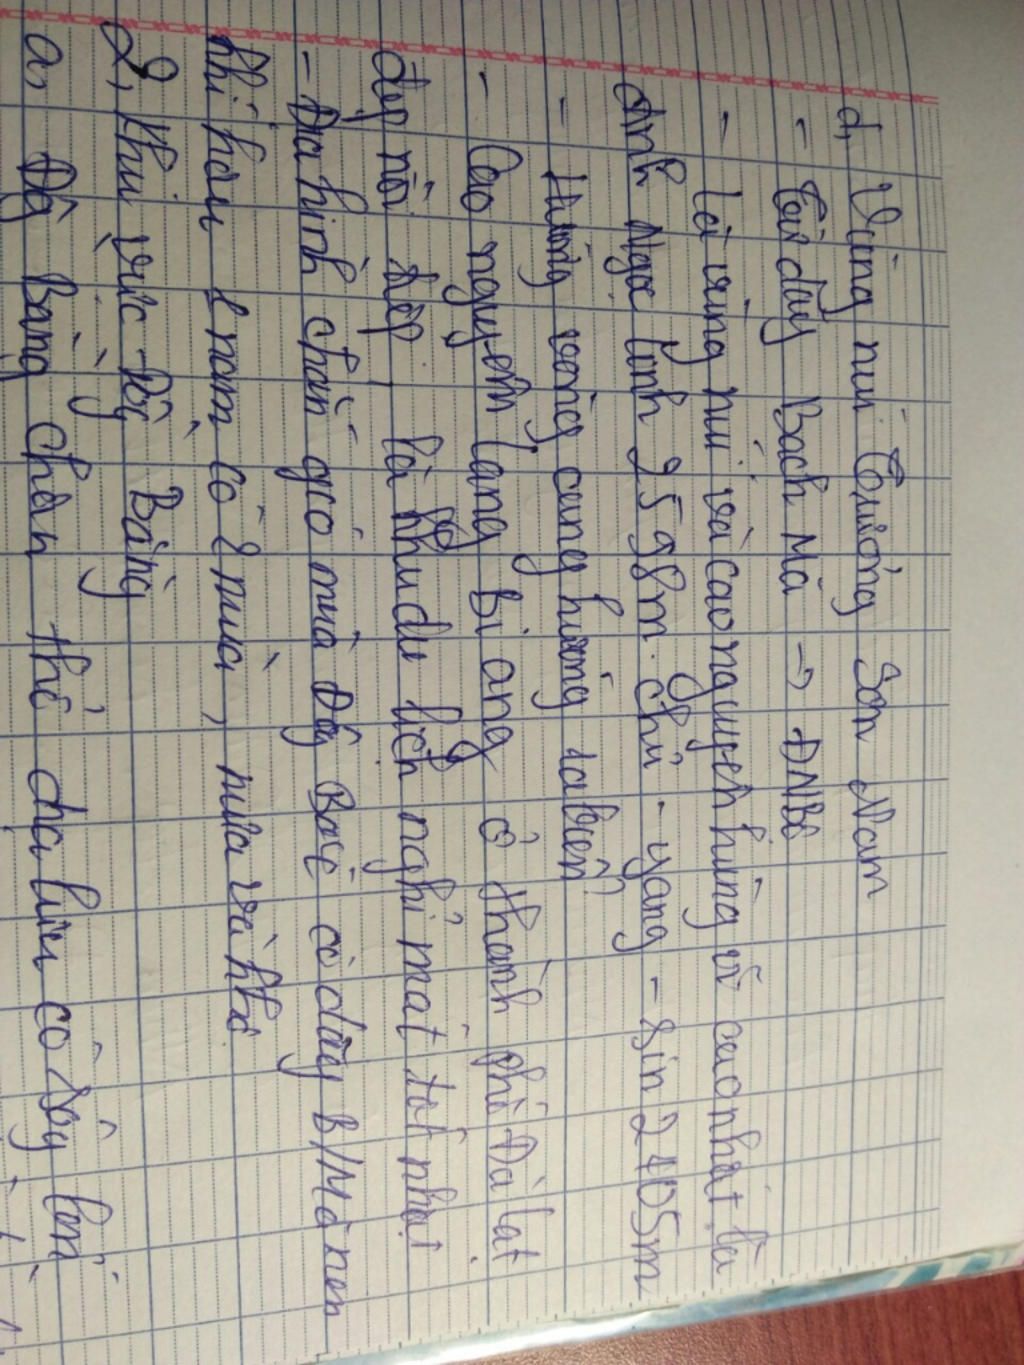 d, Vùng núi Trường Sơn Nam
- Từ dãy Bạch Mã → ĐNBộ
- Là vùng núi và cao nguyên hùng vĩ cao nhất là
đỉnh Ngọc Lĩnh 2598m. Chư - yang - sin 2405m
- Hướng vòng cung hướng ra biển
- Cao nguyên lang bi ang ở thành phố Đà Lạt
đẹp nổi tiếp là khu du lịch nghỉ mát tốt nhất
- Địa hình chắn gió mùa Đông Bắc có dãy B/Mã nên
khí hậu 1 năm có 2 mùa, mưa và khô
2, Khu vực Đồng Bằng
a, Đồng Bằng châu thổ hạ lưu có sông lớn